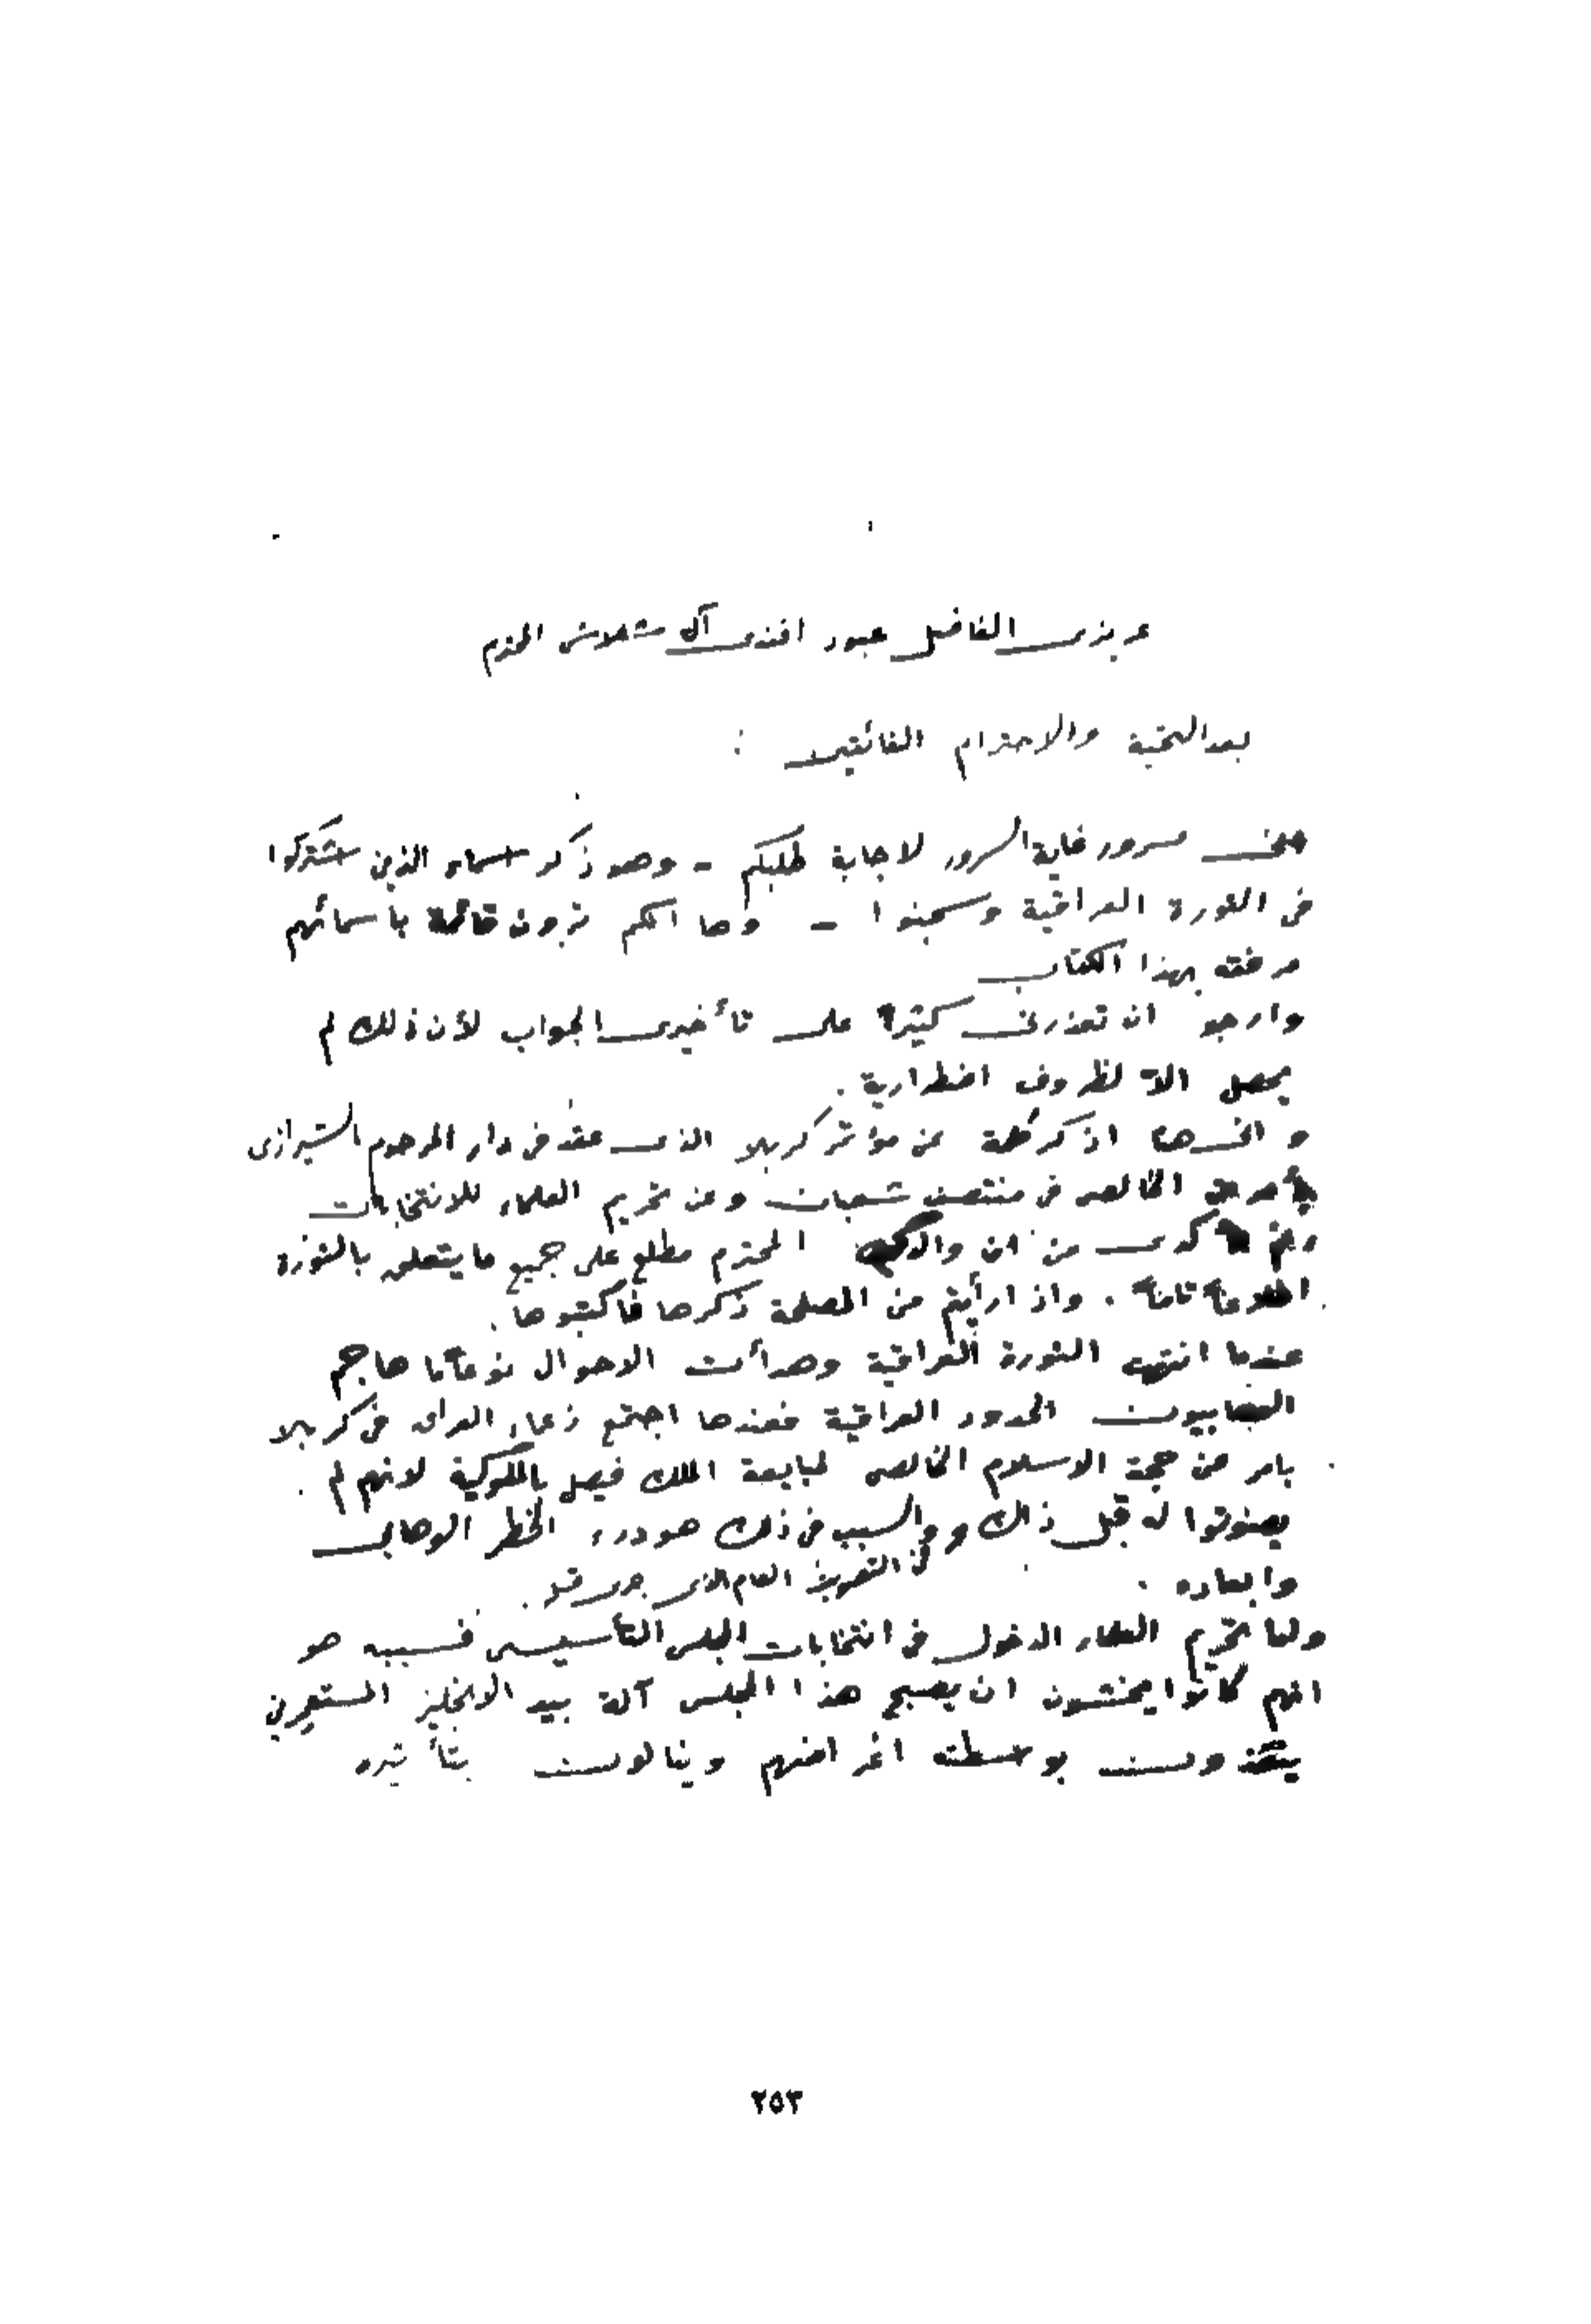 عزيزي الفاضل عبود افندي آل شلاش المحترم
بعد التحية والاحترام الفائقين :
مسرور غاية السرور لاجابة طلبكم - وهو ذكر اسماء الذين اشتركوا
في الثورة العراقية وسجنوا - وها انكم ترون قائمة باسمائهم
مرفقه بهذا الكتاب
وارجو ان تعذروني كثيرا على تأخيري الجواب لأن ذلك لم
يحصل الا لظروف اضطرارية .
اذكر كلمة عن مؤتمر كربلا الذي عقد في دار المرحوم الشيرازي
الخالصي في منتصف شعبان وعن تحريم العلماء للانتخابات
رغم من ان والدكم المحترم مطلع على جميع ما يتعلق بالثورة
اطلاعاً تاماً . واذا رأيتم من المصلحة ذكرها فاكتبوها .
عندما انتهت الثورة العراقية وهدأت الاحوال نوعاً ما هاجم
الحدود العراقية فعندها اجتمع زعماء العراق في كربلا
بامر من حجة الاسلام الخالصي لمبايعة الملك فيصل بالملوكية لانهم لم
يصوتوا له قبل ذاك و والسبب في ذلك هو درء الخطر الوهابي
في التصويت العام الذي جرى
وابعاده .
ولما تحريم العلماء الدخول في انتخابات المجلس التأسيسي فسببه هو
انهم كانوا يخشون ان يصبح هذا المجلس آلة بيد الانجليز المستعمرين
ينفذون بوسطته اغراضهم وينالون بتأثيره
٢٥٣